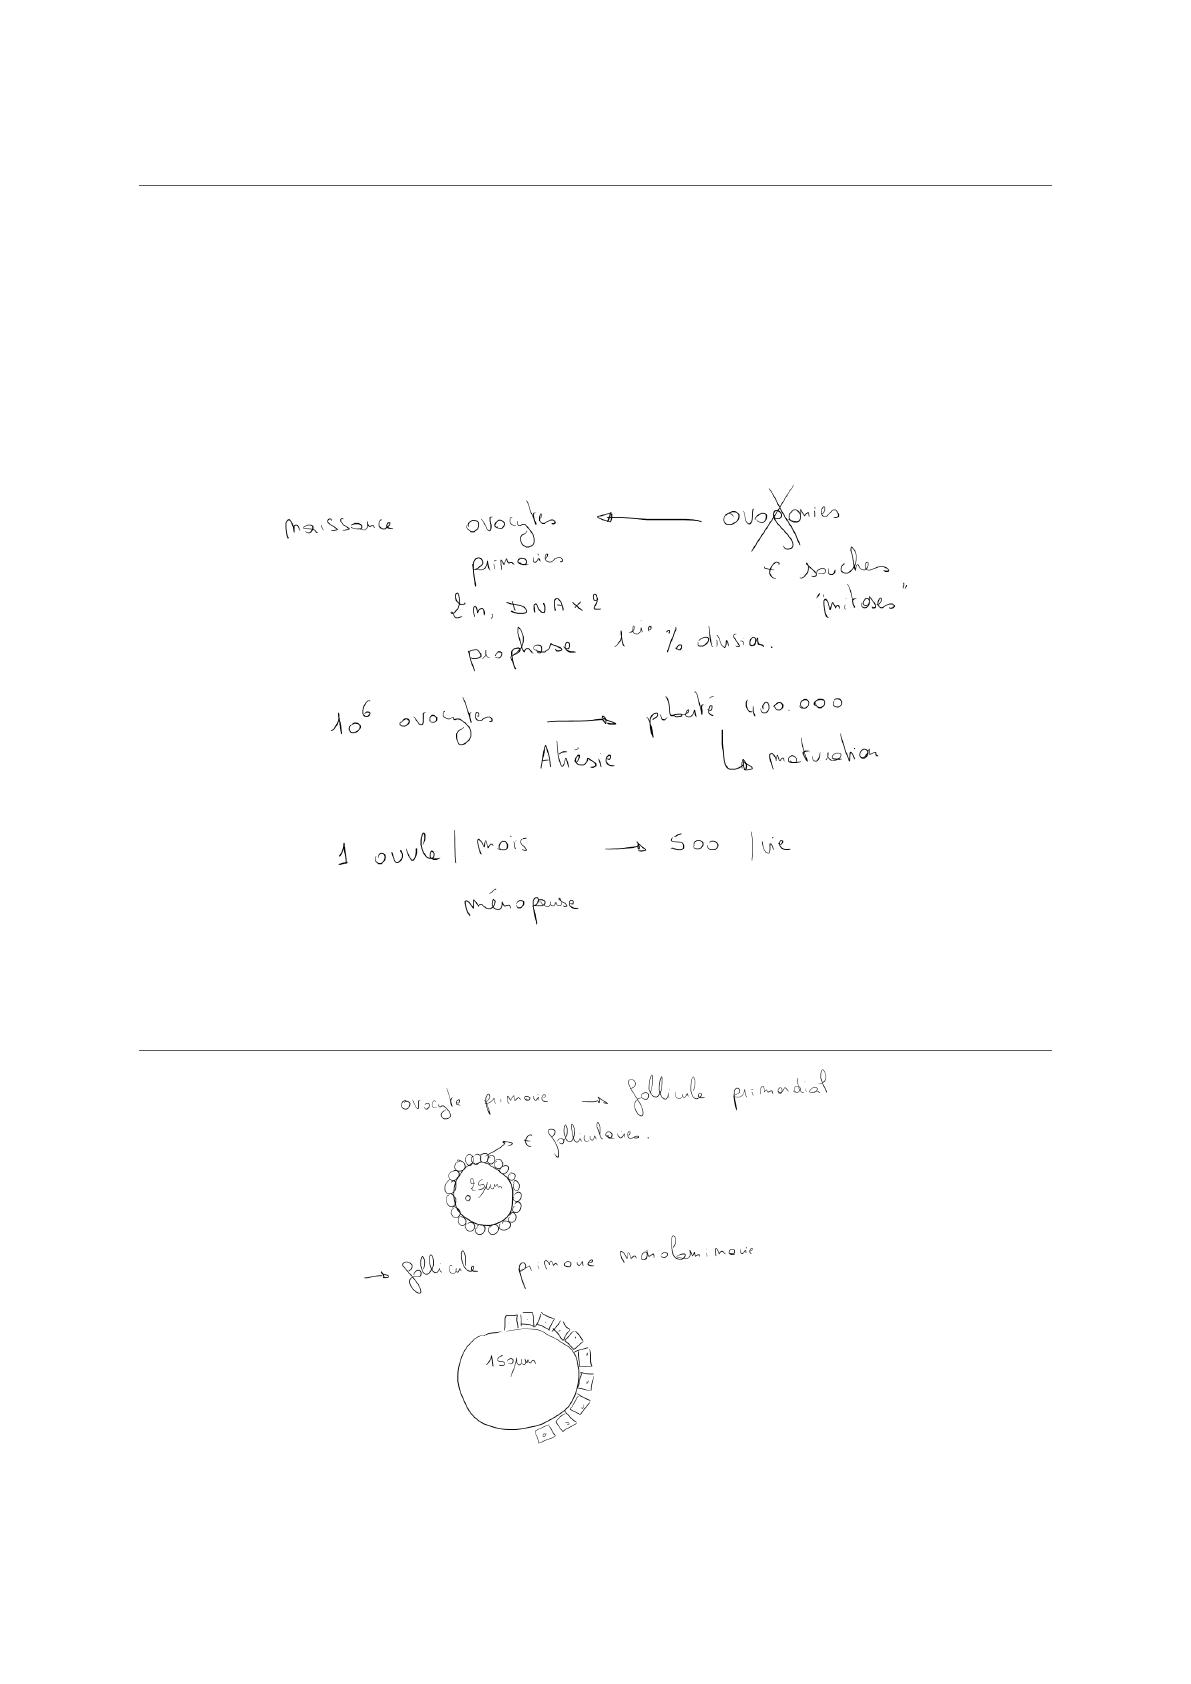 naissance ovocytes ← ovogonies
primaires € souches
2n, DNA x 2 "mitoses"
prophase 1ère % division.
10⁶ ovocytes → puberté 400.000
Atrésie ↳ maturation
1 ovule / mois → 500 / vie
ménopause
ovocyte primaire → follicule primordial
→ € folliculaires.
25µm
→ follicule primaire monolaminaire
150µm